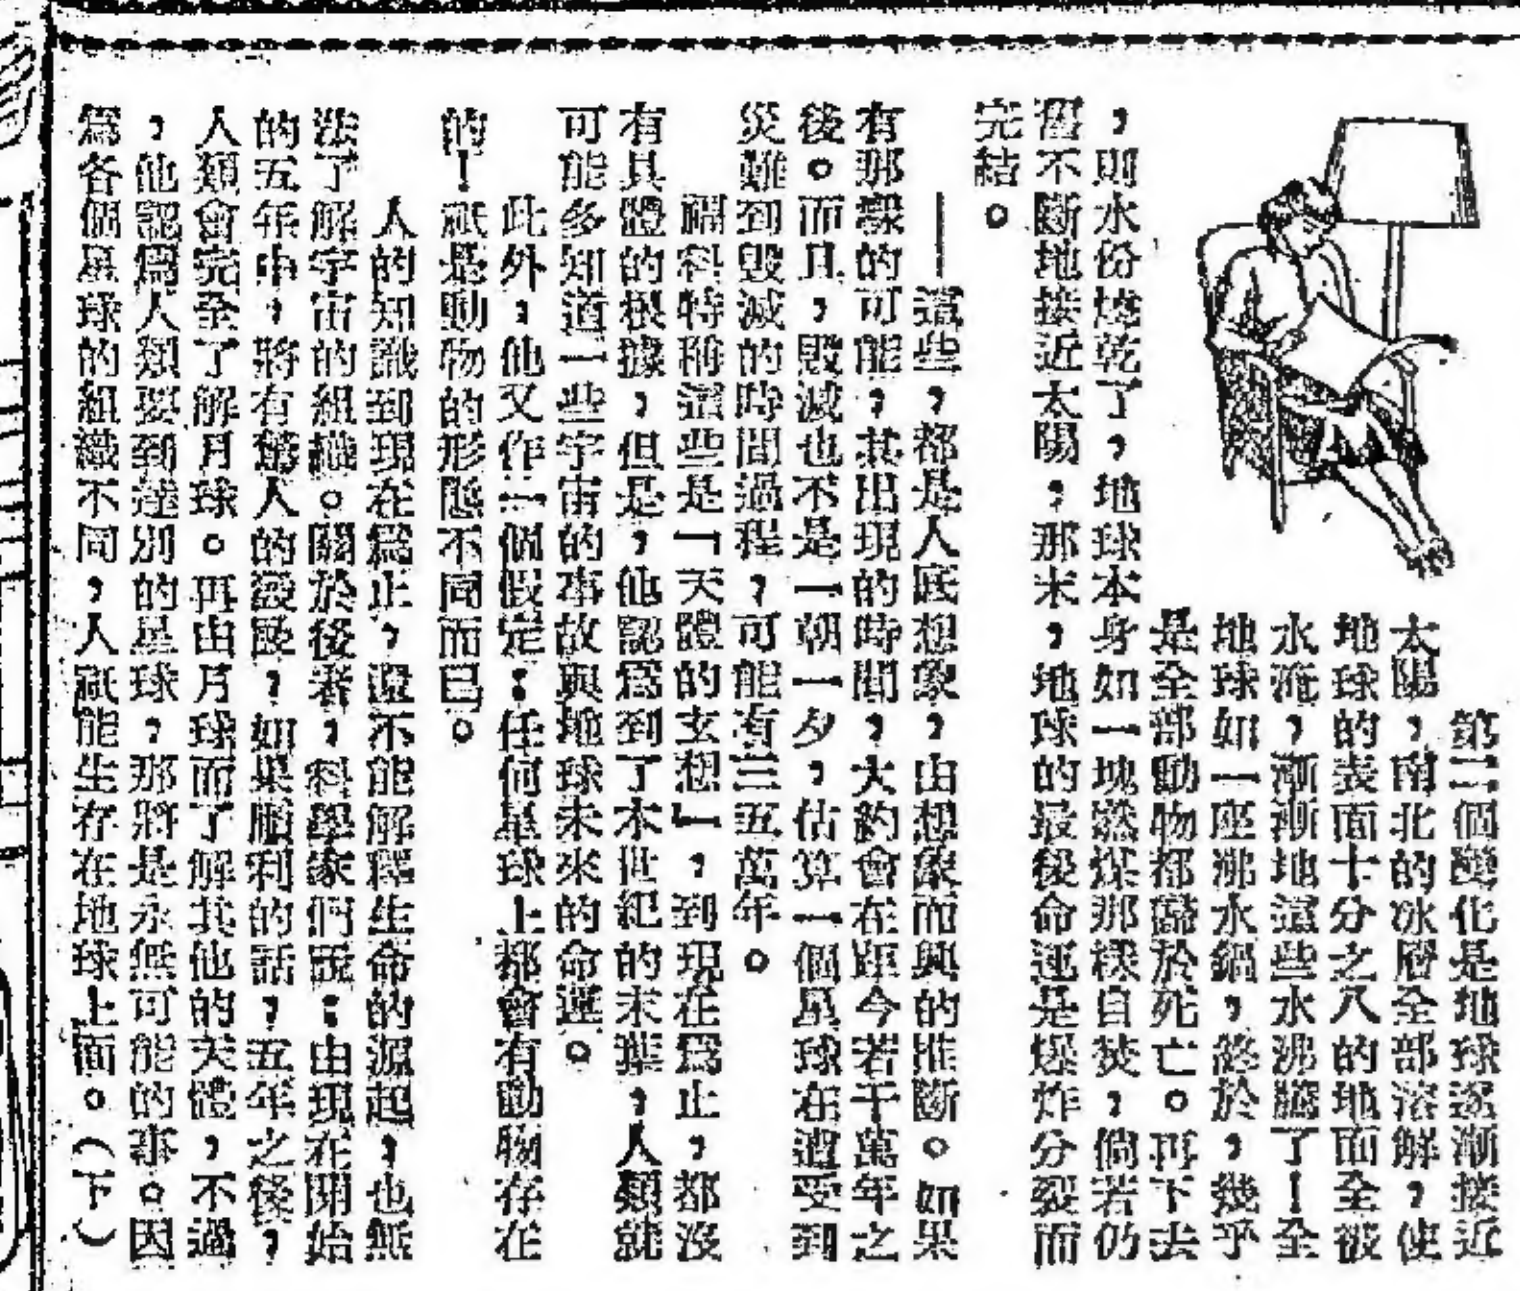 第二個變化是地球逐漸接近
太陽，南北的冰層全部溶解，使
地球的表面十分之八的地面全被
水淹，漸漸地這些水沸騰了！全
地球如一座沸水鍋，終於，幾乎
是全部動物都歸於死亡。再下去
，則水份燒乾了，地球本身如一塊燃煤那樣自焚，倘若仍
舊不斷地接近太陽，那末，地球的最後命運是爆炸分裂而
完結。
——這些，都是人底想象，由想象而興的推斷。如果
有那樣的可能，其出現的時間，大約會在距今若干萬年之
後。而且，毀滅也不是一朝一夕，估算一個星球在遭受到
災難到毀滅的時間過程，可能有三五萬年。
福科特稱這些是「天體的玄想」，到現在為止，都沒
有具體的根據，但是，他認為到了本世紀的末葉，人類就
可能多知道一些宇宙的事故與地球未來的命運。
此外，他又作一個假定：任何星球上都會有動物存在
的！祇是動物的形態不同而已。
人的知識到現在為止，還不能解釋生命的源起，也無
法了解宇宙的組織。關於後者，科學家們說：由現在開始
的五年中，將有驚人的發展，如果順利的話，五年之後，
人類會完全了解月球。再由月球而了解其他的天體，不過
，他認為人類要到達別的星球，那將是永無可能的事。因
為各個星球的組織不同，人祇能生存在地球上面。（下）